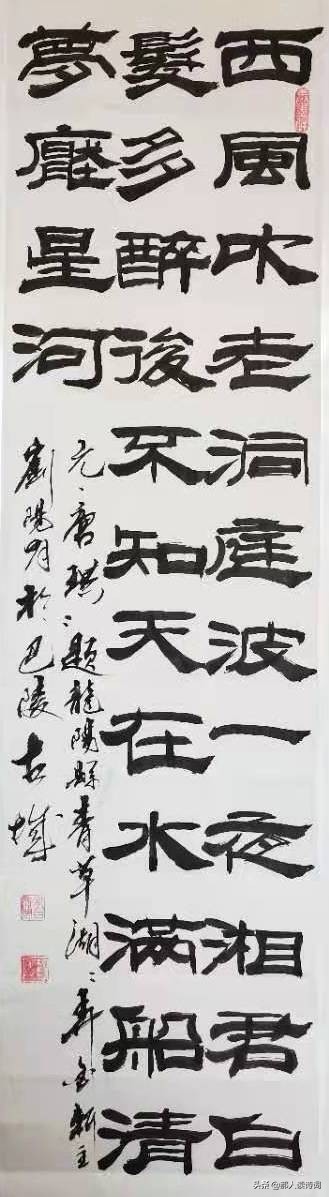 西風吹老洞庭波一夜湘君白
髮多醉後不知天在水滿船清
夢壓星河
元、唐珙、題龍陽縣青草湖、主
劉陽於巴陵古城
头条